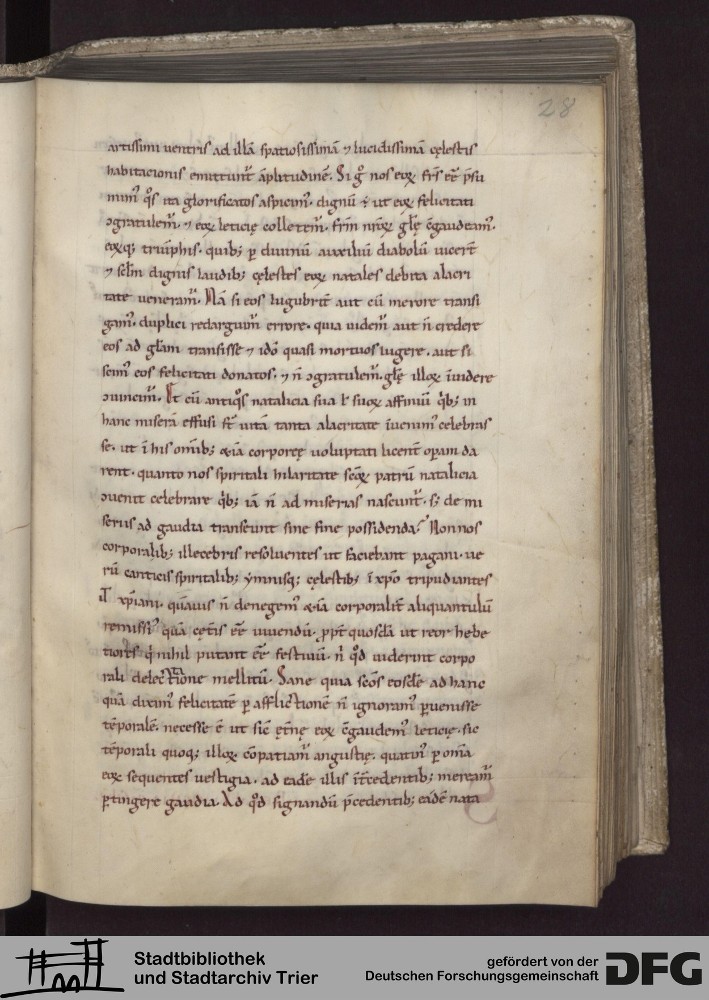 28
artissimi ventris ad illā spatiosissimā ⁊ lucidissimā cęlestis
habitacionis emittunt᷑ āplitudinē. Si gͦ nos eoꝝ frs̄ eē p̄su
mim᷒ qͦs ita glorificatos aspicim᷒. dignū ē ut eoꝝ felicitati
ↄgratulem᷑. ⁊ eoꝝ leticię colletem᷑. frm̄ nr̄oꝝ glę̄ cōgaudeam᷒.
eoꝝq; triūphis. quib; ꝑ diuinū auxiliū diabolū uicer̄t
⁊ sclm̄ dignis laudib; cęlestes eoꝝ natales debita alacri
tate ueneram᷑. Nā si eos lugubrit̄ aut cū merore transi
gam᷒. duplici redarguim᷑ errore. quia uidem᷑ aut n̄ credere
eos ad glām transisse ⁊ idō quasi mortuos lugere. aut si
scim᷒ eos felicitati donatos. ⁊ n̄ ↄgratulem᷑. glę̄ illoꝝ īuidere
ↄuincim᷑. At cū antiqͦs natalicia sua ł suoꝝ affiniū qⁱb; in
hanc miserā effusi st̄ uitā tanta alacritate īuenim᷒ celebras
se. ut ī his omīb; &iā corporeę uoluptati licent̄ oꝑam da
rent. quanto nos spiritali hilaritate sc̄oꝝ patrū natalicia
ↄuenit celebrare qⁱb; iā n̄ ad miserias nascunt᷑. s; de mi
seriis ad gaudia transeunt sine fine possidenda? Non nos
corporalib; illecebris resoluentes ut faciebant pagani. ue
rū canticis spiritalib; ẏmnisq; cęlestib; ī xp̄o tripudiantes
ut xp̄iani. quāuis n̄ denegem᷒ &iā corporalit̄ aliquantulū
remissi᷒ quā cęt̄is eē uiuendū. ꝓpt̄ quosdā ut reor hebe
tiores qⁱ nihil putant eē festiuū. nⁱ qͦd uiderint corpo
rali delectatione mellitū. Sane quia sc̄os eosdē ad hanc
quā dixim᷒ felicitatē ꝑ afflictionē n̄ ignoram᷒ ꝑuenisse
tēporalē. necesse ē ut sic̄ ęt̄nę eoꝝ cōgaudem᷒ leticię. sic
tēporali quoq; illoꝝ cōpatiam᷑ angustię. quatin᷒ ꝑ om̄a
eoꝝ sequentes uestigia. ad eadē illis īt̄cedentib; mereām᷑
ꝑtingere gaudia. Ad qͦd signandū p̄cedentib; eādē nata
Stadtbibliothek
und Stadtarchiv Trier
gefördert von der
Deutschen Forschungsgemeinschaft
DFG